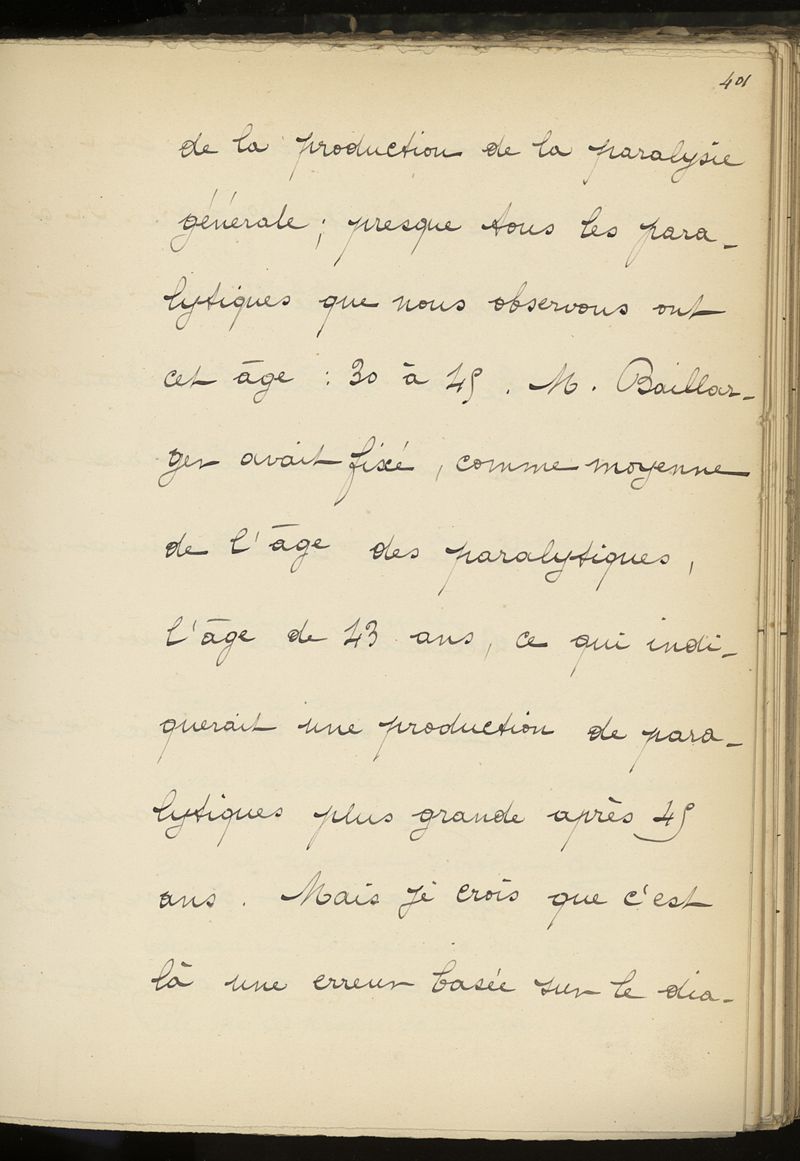 401
de la production de la paralysie
générale ; presque tous les para-
lytiques que nous observons ont
cet âge : 30 à 45 . M. Baillar-
ger avait fixé , comme moyenne
de l'âge des paralytiques ,
l'âge de 43 ans , ce qui indi-
querait une production de para-
lytiques plus grande après 45
ans . Mais je crois que c'est
là une erreur basée sur le dia-